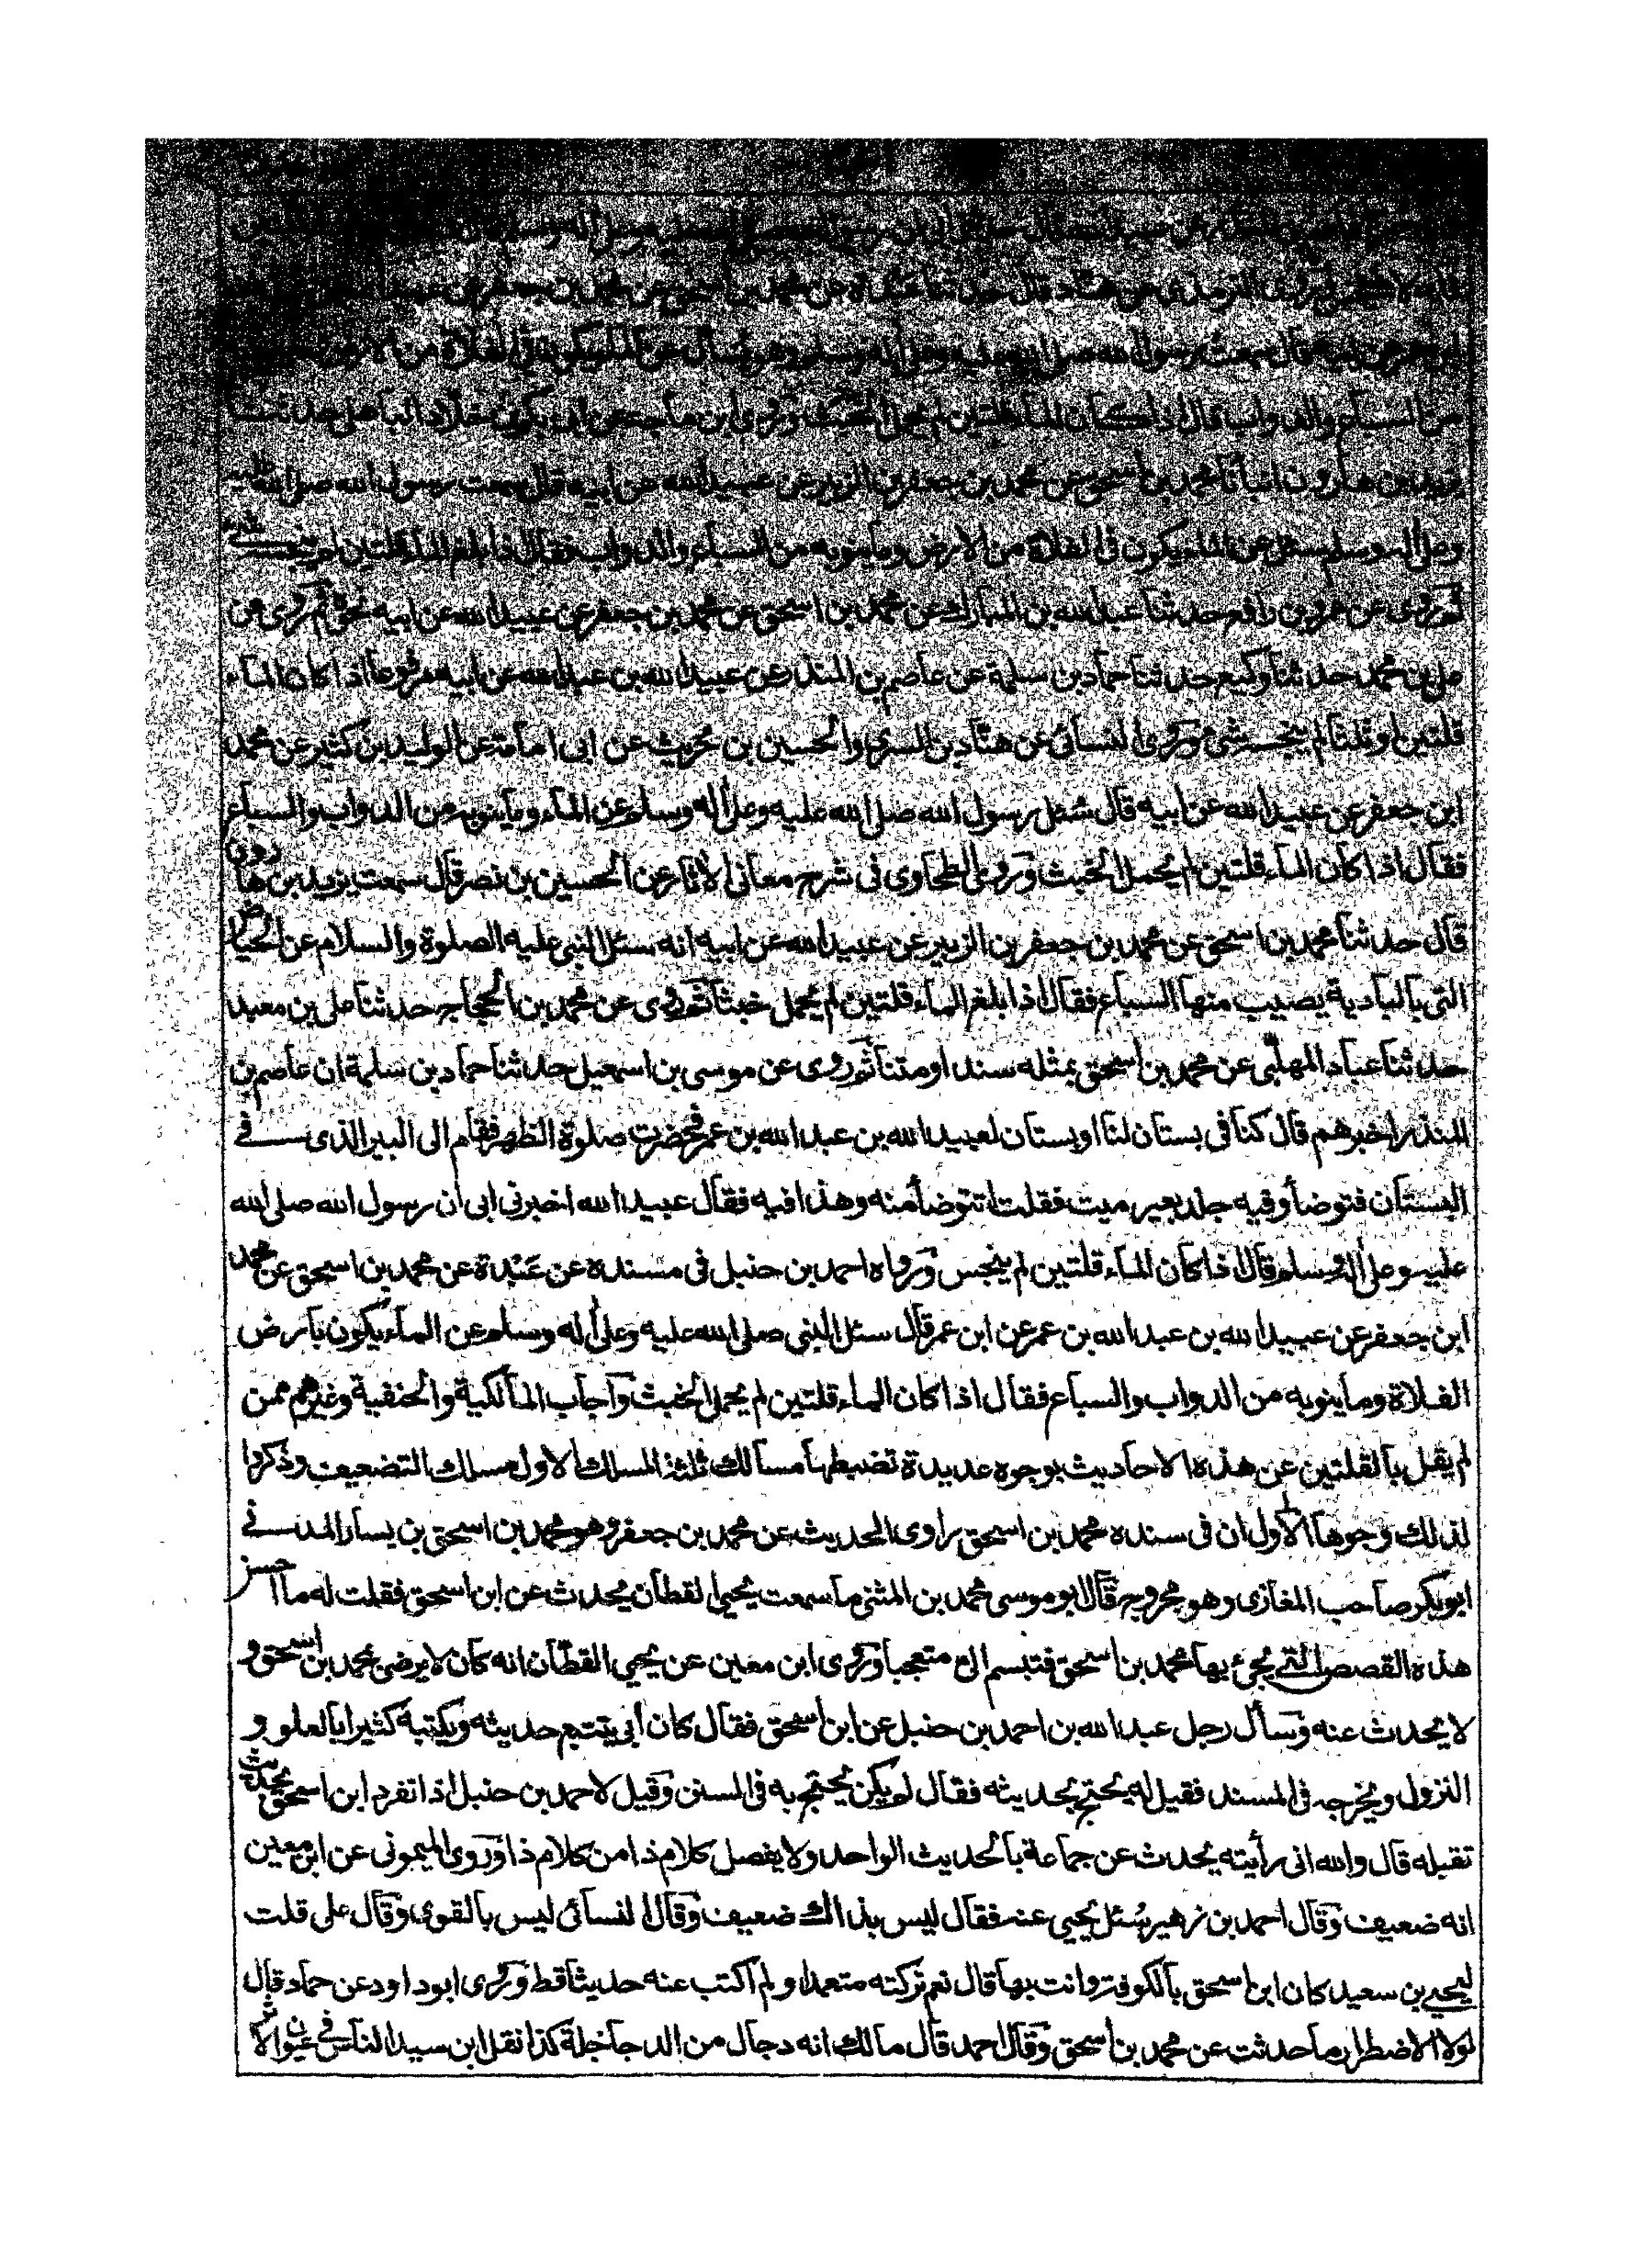 رسول الله صلى الله عليه وعلى اله وسلم
فانه لا ينجس وروى الترمذي عن هناد قال حدثنا عبدة عن محمد بن اسحق عن محمد بن جعفر بن
ابن عمر قال سمعت رسول الله صلى الله عليه وعلى اله وسلم وهو يسأل عن الماء يكون في الفلاة من الارض
من السباع والدواب قال اذا كان الماء قلتين لم يحمل الخبث وروى ابن ماجه عن ابى بكر بن خلاد الباهلى حدثنا
يزيد بن هارون انبأنا محمد بن اسحق عن محمد بن جعفر بن الزبير عن عبيد الله عن ابيه قال سمعت رسول الله صلى الله عليه
وعلى اله وسلم سئل عن الماء يكون في الفلاة من الارض وما ينوبه من السباع والدواب فقال اذا بلغ الماء قلتين لم ينجسه شئ
ثم روى عن عمرو بن رافع حدثنا عبد الله بن المبارك عن محمد بن اسحق عن محمد بن جعفر عن عبيد الله عن ابيه نحوه ثم روى عن
على بن محمد حدثنا وكيع حدثنا حماد بن سلمة عن عاصم بن المنذر عن عبيد الله بن عبد الله عن ابيه مرفوعا اذا كان الماء
قلتين او ثلثا لم ينجسه شئ وروى النسائى عن هناد بن السرى والحسين بن حريث عن ابى امامة عن الوليد بن كثير عن محمد
ابن جعفر عن عبيد الله عن ابيه قال سئل رسول الله صلى الله عليه وعلى اله وسلم عن الماء وما ينوبه من الدواب والسباع
فقال اذا كان الماء قلتين لم يحمل الخبث وروى الطحاوى فى شرح معانى الاثار عن الحسين بن نصر قال سمعت يزيد بن هارون
قال حدثنا محمد بن اسحق عن محمد بن جعفر بن الزبير عن عبيد الله عن ابيه انه سئل النبى عليه الصلوة والسلام عن الحياض
التى بالبادية يصيب منها السباع فقال اذا بلغ الماء قلتين لم يحمل خبثا ثم روى عن محمد بن الحجاج حدثنا على بن معبد
حدثنا عباد المهلبى عن محمد بن اسحق بمثله سندا ومتنا ثم روى عن موسى بن اسمعيل حدثنا حماد بن سلمة ان عاصم بن
المنذر اخبرهم قال كنا فى بستان لنا او بستان لعبيد الله بن عبد الله بن عمر فحضرت صلوة الظهر فقام الى البير الذى فى
البستان فتوضأ وفيه جلد بعير ميت فقلت اتتوضأ منه وهذا فيه فقال عبيد الله اخبرنى ابى ان رسول الله صلى الله
عليه وعلى اله وسلم قال اذا كان الماء قلتين لم ينجس ورواه احمد بن حنبل فى مسنده عن عبدة عن محمد بن اسحق عن محمد
ابن جعفر عن عبيد الله بن عبد الله بن عمر عن ابن عمر قال سئل النبى صلى الله عليه وعلى اله وسلم عن الماء يكون بارض
الفلاة وما ينوبه من الدواب والسباع فقال اذا كان الماء قلتين لم يحمل الخبث واجاب المالكية والحنفية وغيرهم ممن
لم يقل بالقلتين عن هذه الاحاديث بوجوه عديدة تضبطها مسالك ثلثة المسلك الاول مسلك التضعيف وذكروا
لذلك وجوها الاول ان فى سنده محمد بن اسحق راوى الحديث عن محمد بن جعفر وهو محمد بن اسحق بن يسار المدنى
ابو بكر صاحب المغازى وهو مجروح قال ابو موسى محمد بن المثنى ما سمعت يحيى القطان يحدث عن ابن اسحق فقلت له ما احسن
هذه القصص التى يجئ بها محمد بن اسحق فتبسم الى متعجبا وروى ابن معين عن يحيى القطان انه كان لا يرضى محمد بن اسحق و
لا يحدث عنه وسأل رجل عبد الله بن احمد بن حنبل عن ابن اسحق فقال كان أبى يتتبع حديثه ويكتبه كثيرا بالعلو و
النزول ويخرجه فى المسند فقيل له يحتج بحديثه فقال لم يكن يحتج به فى السنن وقيل لاحمد بن حنبل اذا تفرد ابن اسحق بحديث
تقبله قال والله انى رأيته يحدث عن جماعة بالحديث الواحد ولا يفصل كلام ذا من كلام ذا وروى الميمونى عن ابن معين
انه ضعيف وقال احمد بن زهير سئل يحيى عنه فقال ليس بذاك ضعيف وقال النسائى ليس بالقوى وقال على قلت
ليحيى بن سعيد كان ابن اسحق بالكوفة وانت بها قال نعم تركته متعمدا ولم اكتب عنه حديثا قط وروى ابو داود عن حماد قال
لولا الاضطرار ما حدثت عن محمد بن اسحق وقال احمد قال مالك انه دجال من الدجاجلة كذا نقل ابن سيد الناس فى عيون الاثر